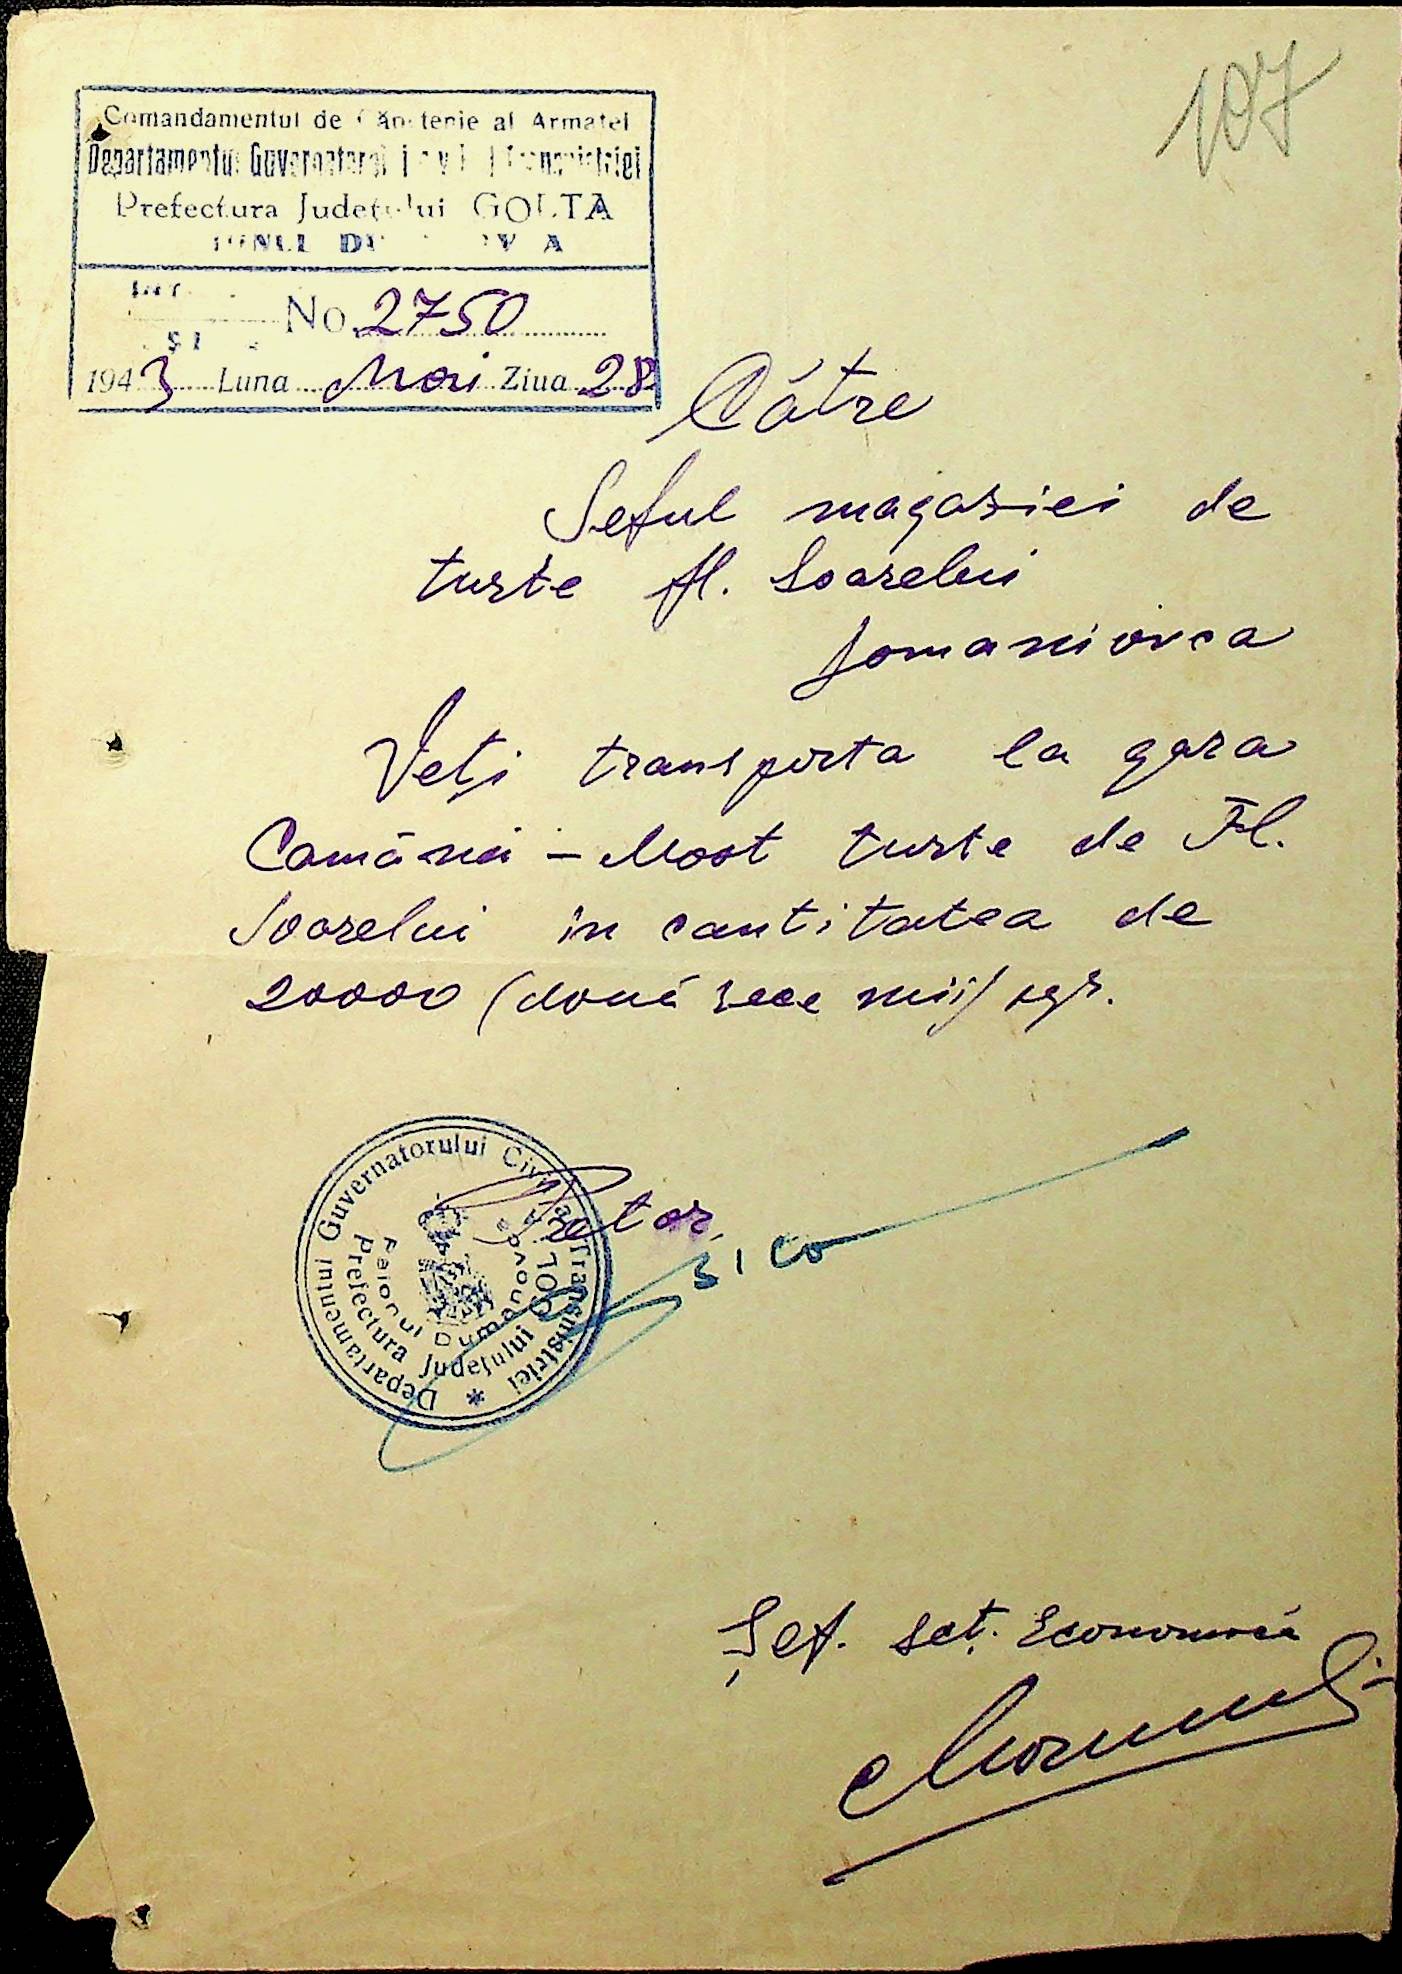 107
Comandamentul de Căpitenie al Armatei
Departamentul Guvernatorul Civil Transnistriei
Prefectura Județului GOLTA
No. 2750
1943 Luna Mai Ziua 28
Către
Șeful magaziei de
turte fl. Soarelui
Domaniovca
Veți transporta la gara
Camânii - Most turte de Fl.
Soarelui in cantitatea de
20000 (două zece mii) kgr.
Pretor,
Departamentul Guvernatorului Civil al Transnistriei
Prefectura Județului GOLTA
Raionul Dumanovca
Șef. secț. Economică